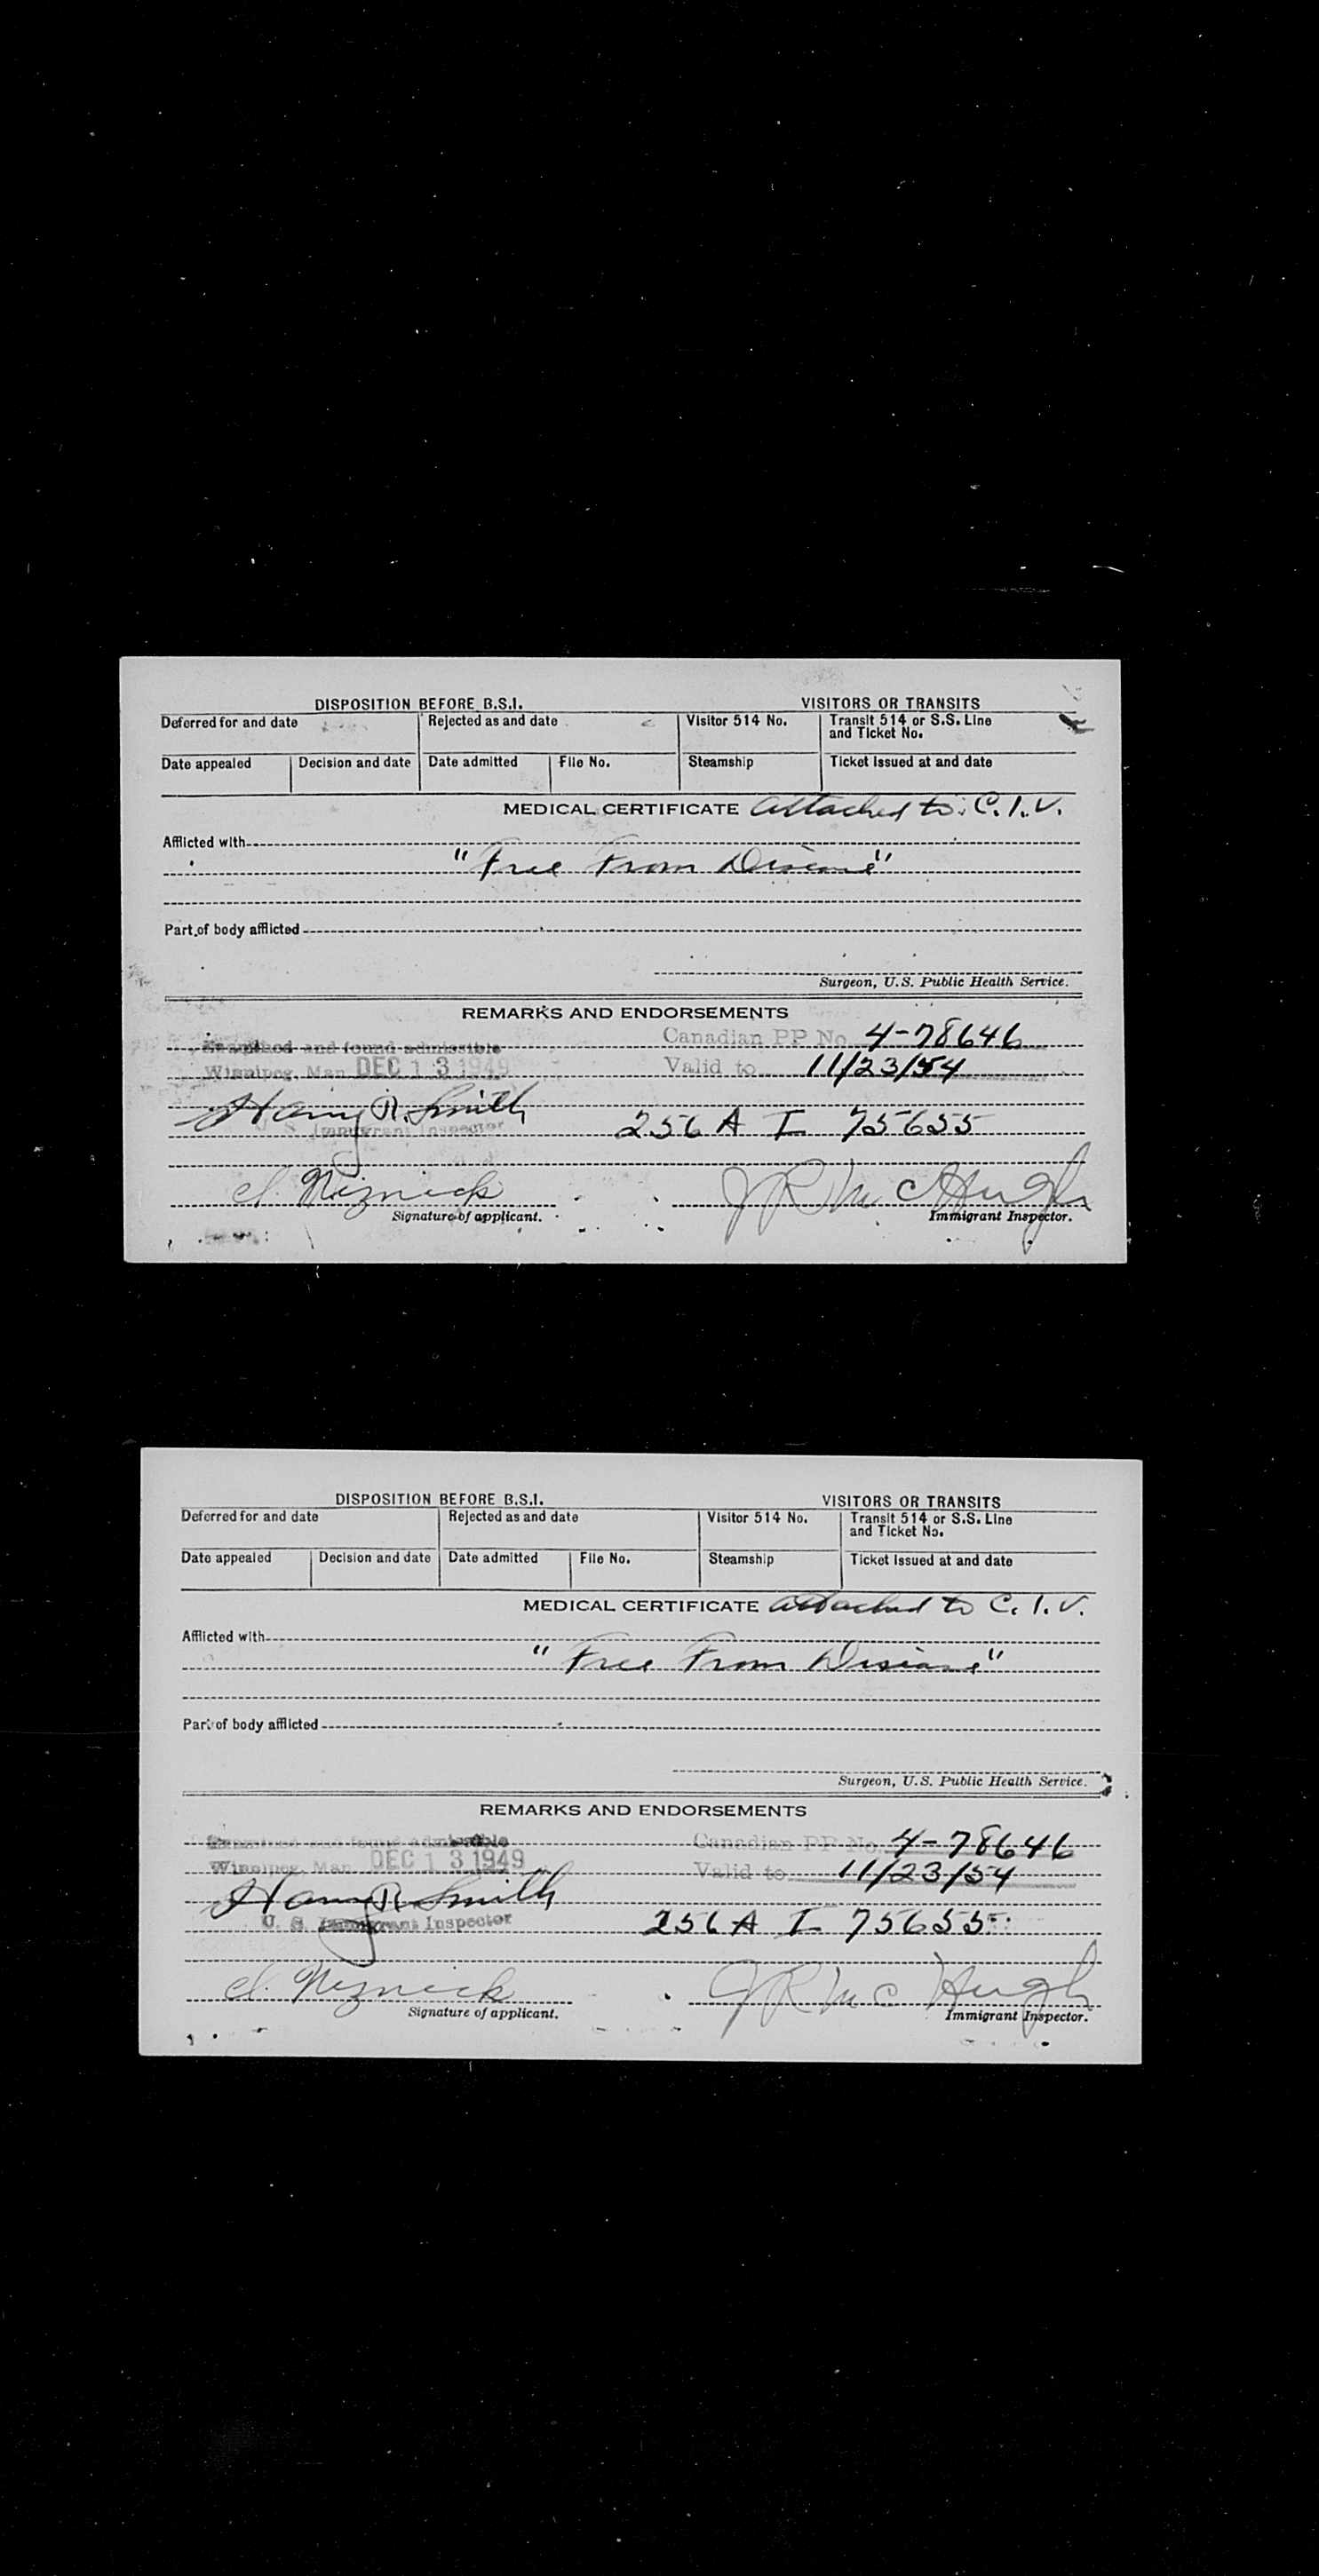 DISPOSITION BEFORE B.S.I. VISITORS OR TRANSITS
Deferred for and date Rejected as and date Visitor 514 No. Transit 514 or S.S. Line
and Ticket No.
Date appealed Decision and date Date admitted File No. Steamship Ticket issued at and date
MEDICAL CERTIFICATE attached to C.I.V.
Afflicted with
"Free From Disease"
Part of body afflicted
Surgeon, U.S. Public Health Service.
REMARKS AND ENDORSEMENTS
Examined and found admissible Canadian PP No. 4-78646
Winnipeg, Man. DEC 13 1949 Valid to 11/23/54
Harry R. Smith
U. S. Immigrant Inspector 256 A I 75655
Niznick JR McHugh
Signature of applicant. Immigrant Inspector.
DISPOSITION BEFORE B.S.I. VISITORS OR TRANSITS
Deferred for and date Rejected as and date Visitor 514 No. Transit 514 or S.S. Line
and Ticket No.
Date appealed Decision and date Date admitted File No. Steamship Ticket issued at and date
MEDICAL CERTIFICATE attached to C.I.V.
Afflicted with
"Free From Disease"
Part of body afflicted
Surgeon, U.S. Public Health Service.
REMARKS AND ENDORSEMENTS
Examined and found admissible Canadian PP No. 4-78646
Winnipeg, Man. DEC 13 1949 Valid to 11/23/54
Harry R. Smith
U. S. Immigrant Inspector 256 A I 75655
Niznick JR McHugh
Signature of applicant. Immigrant Inspector.